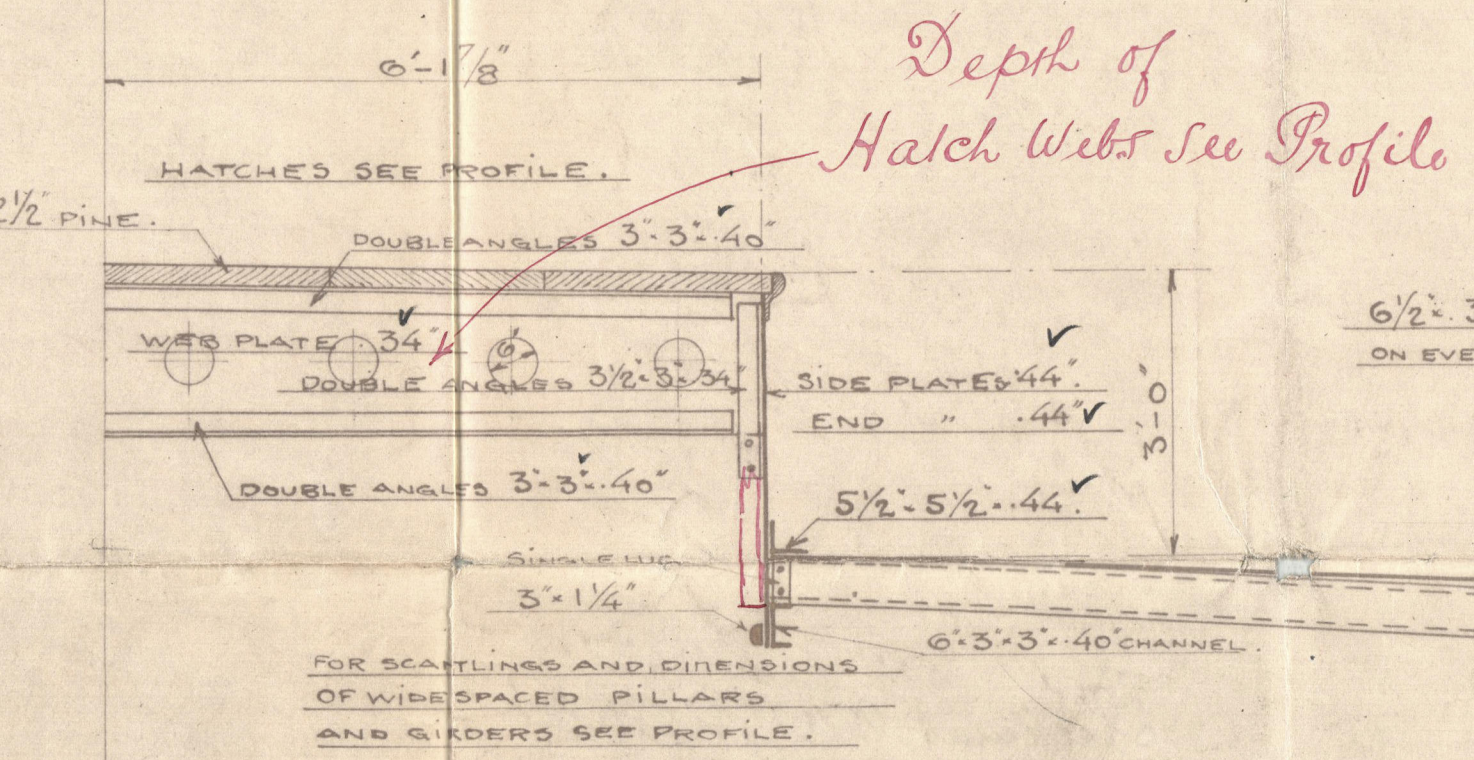 6'-1 7/8"
Depth of
Hatch Webs see Profile
HATCHES SEE PROFILE.
2½" PINE.
DOUBLE ANGLES 3"×3"×.40"
WEB PLATE .34"
6"
DOUBLE ANGLES 3½"×3"×.34"
SIDE PLATES .44".
END " .44"
3'-0"
6½"×.3
ON EVE
DOUBLE ANGLES 3"×3"×.40"
5½"×5½"×.44".
SINGLE LUG
3"×1¼"
6"×3"×3"×.40" CHANNEL.
FOR SCANTLINGS AND DIMENSIONS
OF WIDE SPACED PILLARS
AND GIRDERS SEE PROFILE.